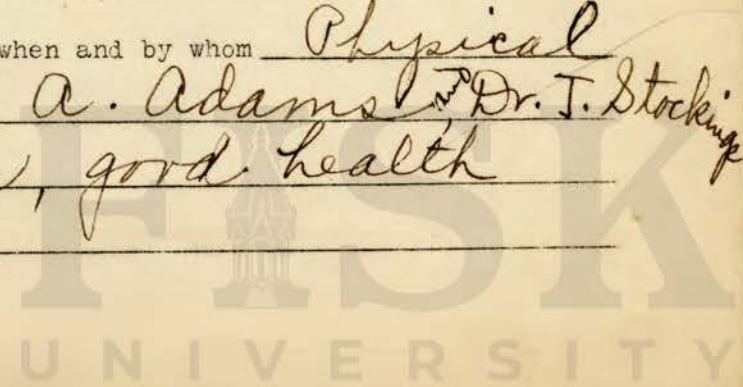 when and by whom Physical
A. Adams and Dr. J. Stockings
, good health
FISK
UNIVERSITY